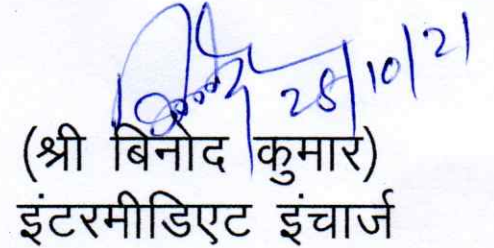 28/10/21
(श्री बिनोद कुमार)
इंटरमीडिएट इंचार्ज